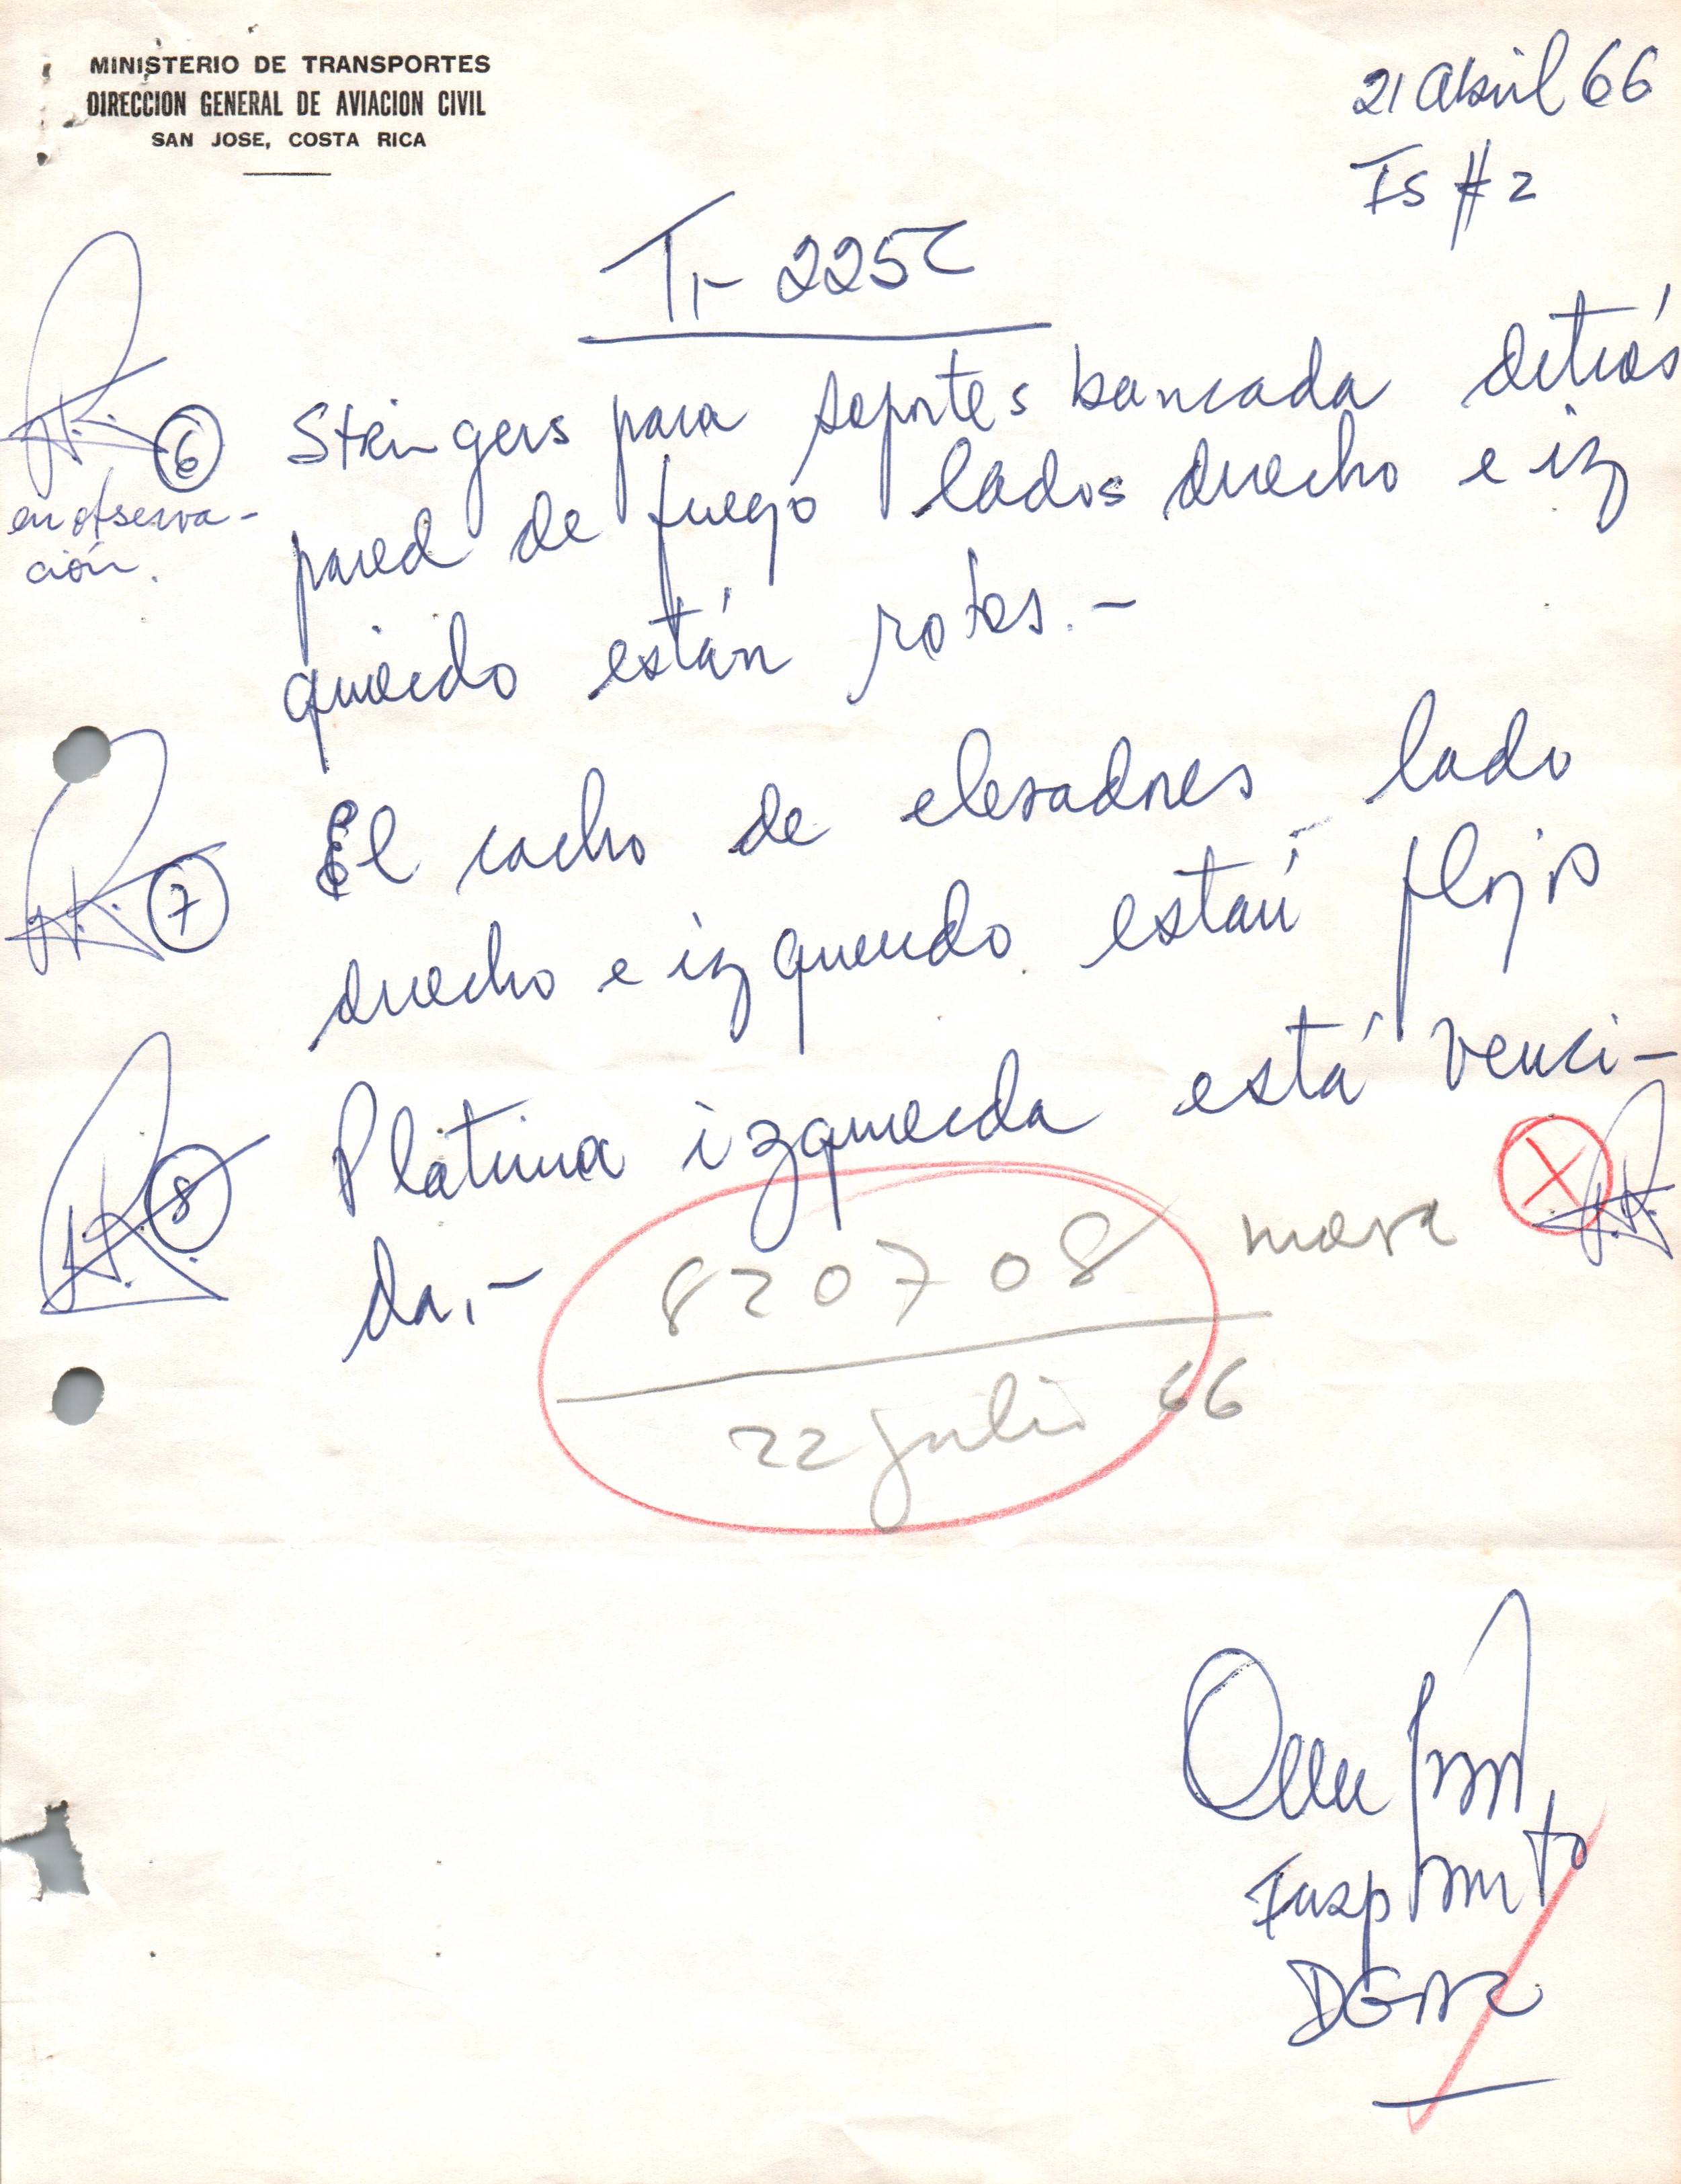 MINISTERIO DE TRANSPORTES
DIRECCION GENERAL DE AVIACION CIVIL
SAN JOSE, COSTA RICA
21 Abril 66
Is # 2
TI-225C
6 Stringers para soportes bancada detrás
en observa-
ción.
pared de fuego lados derecho e iz
quierdo están rotos.-
7 El cacho de elevadores lado
derecho e izquierdo están flojos
8 Platina izquierda está venci-
da.-
820708
22 julio 66
X
Insp Mmto
DGAC